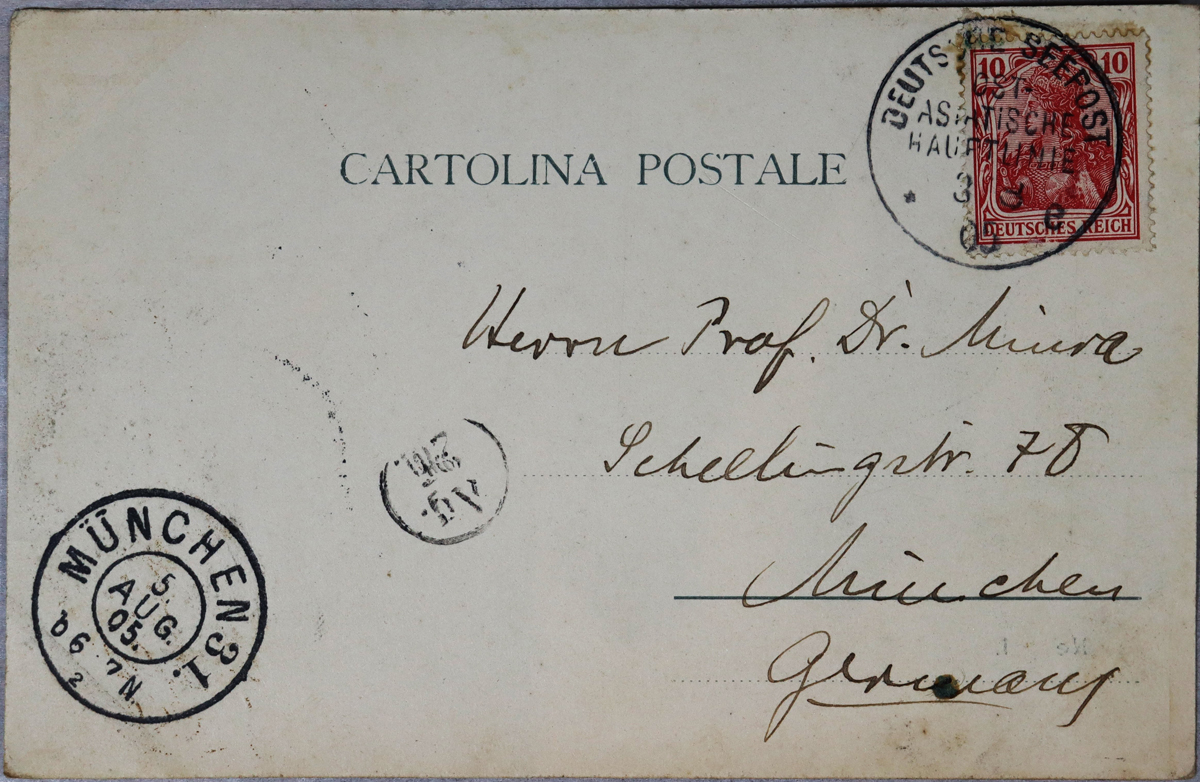 DEUTSCHE SEEPOST
OST-
ASIATISCHE
HAUPTLINIE
e
10 10
DEUTSCHES REICH
CARTOLINA POSTALE
Herrn Prof. Dr. Miura
Schellingstr. 78
München
Germany
MÜNCHEN 31.
5.
AUG.
05.
6-7 N.
2